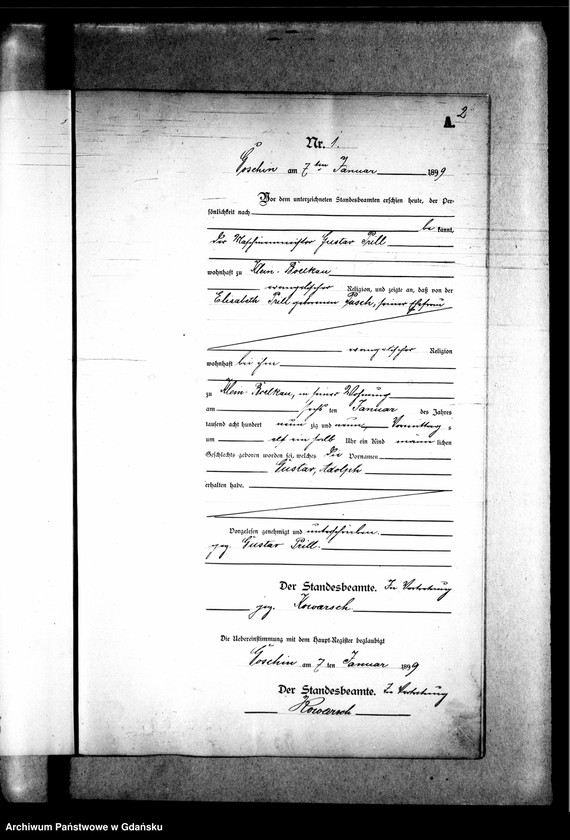 A. 2
Nr. 1.
Goschin am 7ten Januar 1899
Vor dem unterzeichneten Standesbeamten erschien heute, der Per-
sönlichkeit nach
be kannt,
der Maschinenmeister Gustav Prill
wohnhaft zu Klein-Boelkau
evangelischer Religion, und zeigte an, daß von der
Elisabeth Prill geborenen Pasch, seiner Ehefrau
evangelischer Religion
wohnhaft bei ihm
zu Klein-Boelkau, in seiner Wohnung
am sechs ten Januar des Jahres
tausend acht hundert neun zig und neun, Vormittag s
um elf ein halb Uhr ein Kind männ lichen
Geschlechts geboren worden sei, welches die Vornamen
Gustav, Adolph
erhalten habe.
Vorgelesen genehmigt und unterschrieben.
gez. Gustav Prill.
Der Standesbeamte. In Vertretung
gez. Kowarsch
Die Uebereinstimmung mit dem Haupt-Register beglaubigt
Goschin am 7 ten Januar 1899
Der Standesbeamte. In Vertretung
Kowarsch
Archiwum Państwowe w Gdańsku